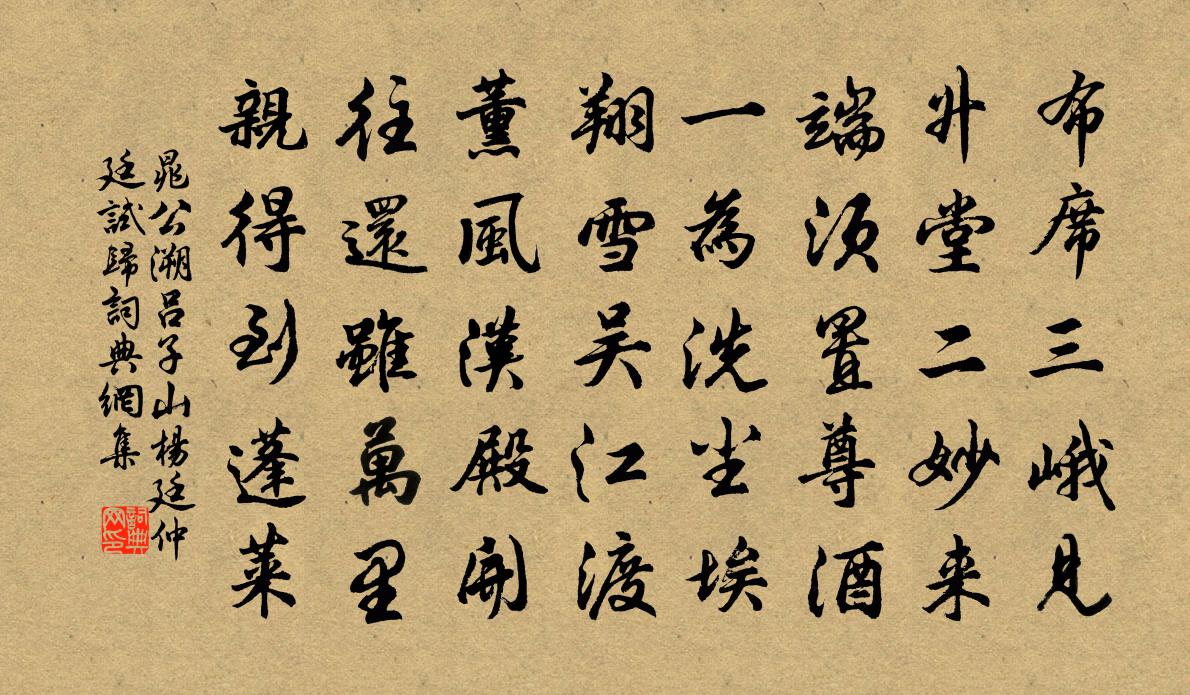 布席三峨見
升堂二妙来
端須置尊酒
一為洗尘埃
翔雪吴江渡
薰風漢殿開
往還雖萬里
親得到蓬莱
晁公溯吕子山楊廷仲
廷試歸詞典網集
詞典網印